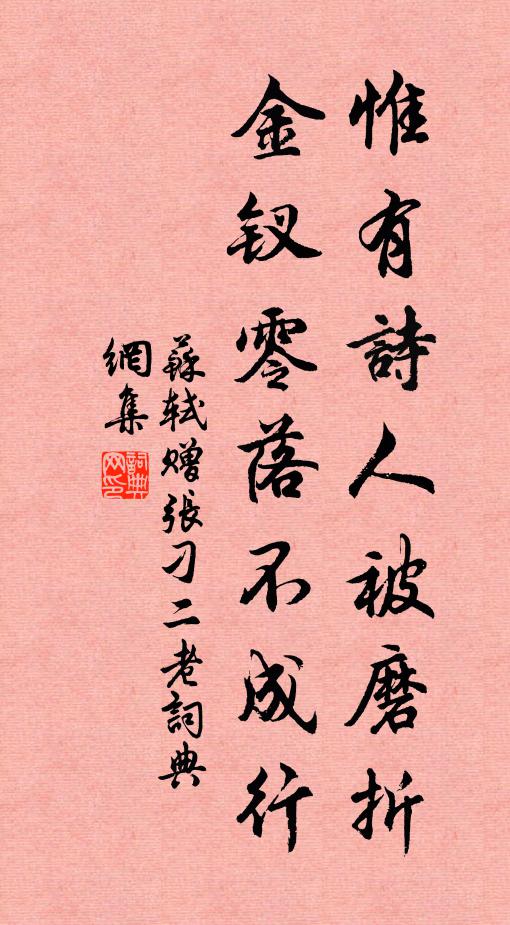 惟有詩人被磨折
金釵零落不成行
蘇軾贈張刁二老詞典
網集
詞典
网印